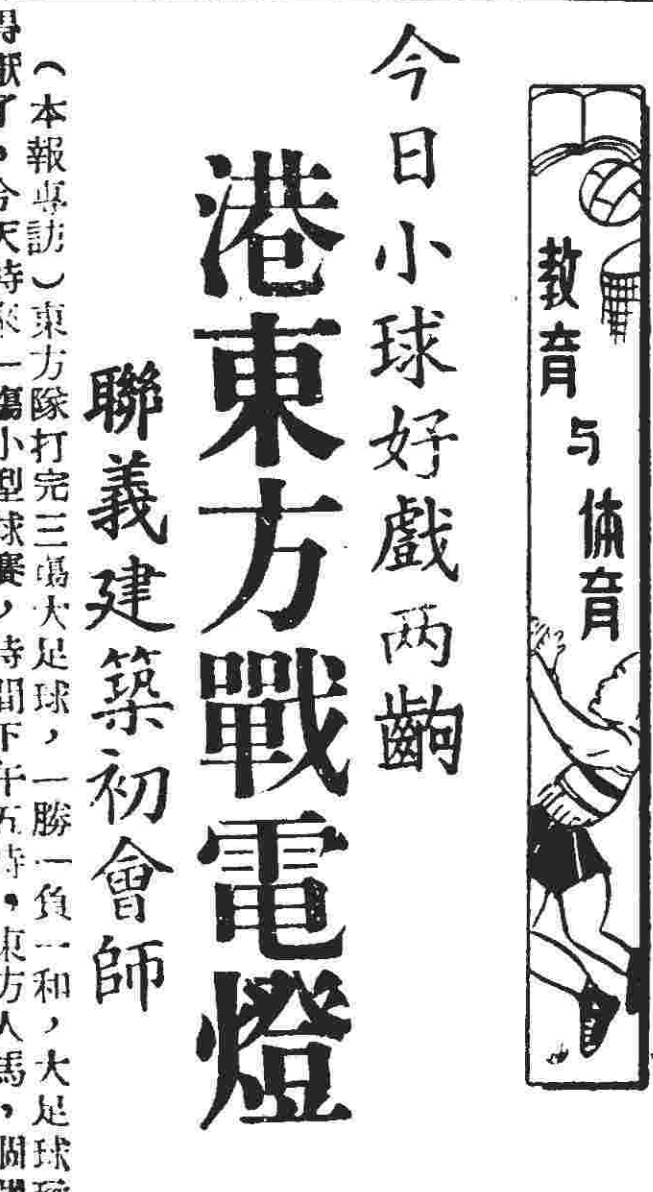 教育与体育
今日小球好戲两齣
港東方戰電燈
聯義建築初會師
（本報專訪）東方隊打完三塲大足球，一勝一負一和，大足球
了，今天時來一塲小型球賽，時間下午五時。東方人馬，個